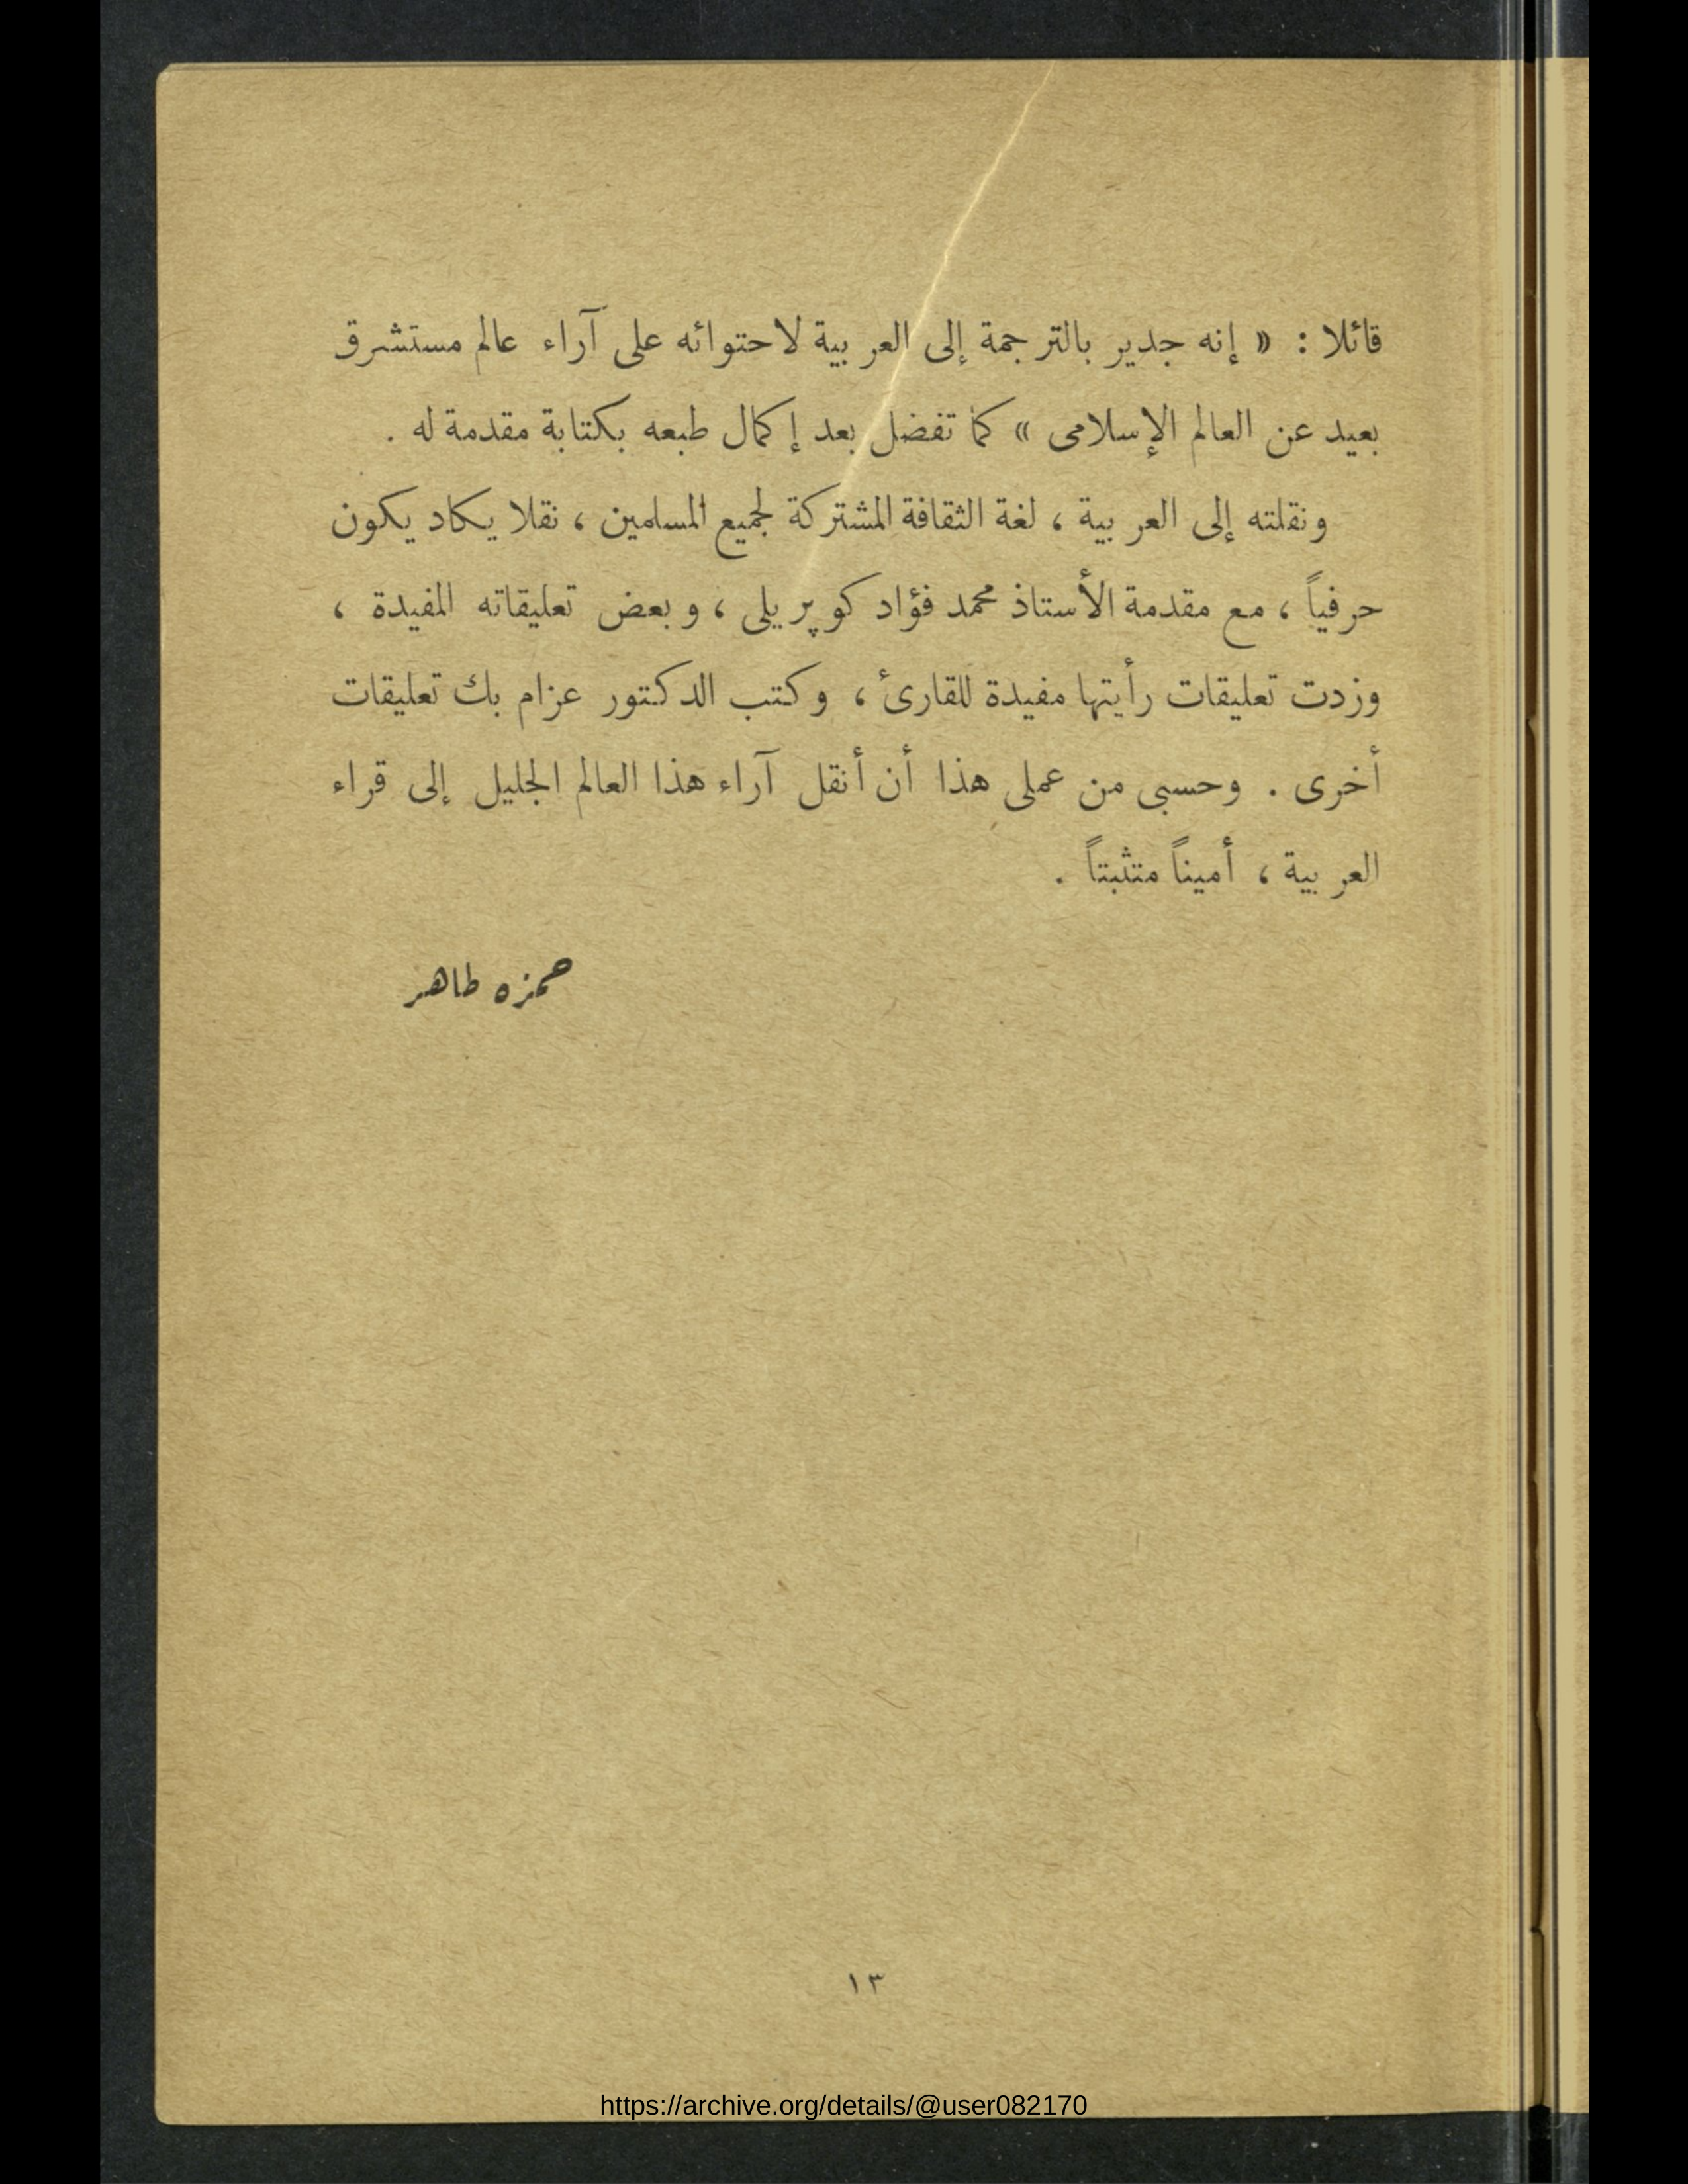 قائلا : « إنه جدير بالترجمة إلى العربية لاحتوائه على آراء عالم مستشرق
بعيد عن العالم الإسلامى » كما تفضل بعد إكمال طبعه بكتابة مقدمة له .
ونقلته إلى العربية ، لغة الثقافة المشتركة لجميع المسلمين ، نقلا يكاد يكون
حرفياً ، مع مقدمة الأستاذ محمد فؤاد كوپريلى ، وبعض تعليقاته المفيدة ،
وزدت تعليقات رأيتها مفيدة للقارئ ، وكتب الدكتور عزام بك تعليقات
أخرى . وحسبى من عملى هذا أن أنقل آراء هذا العالم الجليل إلى قراء
العربية ، أميناً متثبتاً .
حمزه طاهر
١٣
https://archive.org/details/@user082170